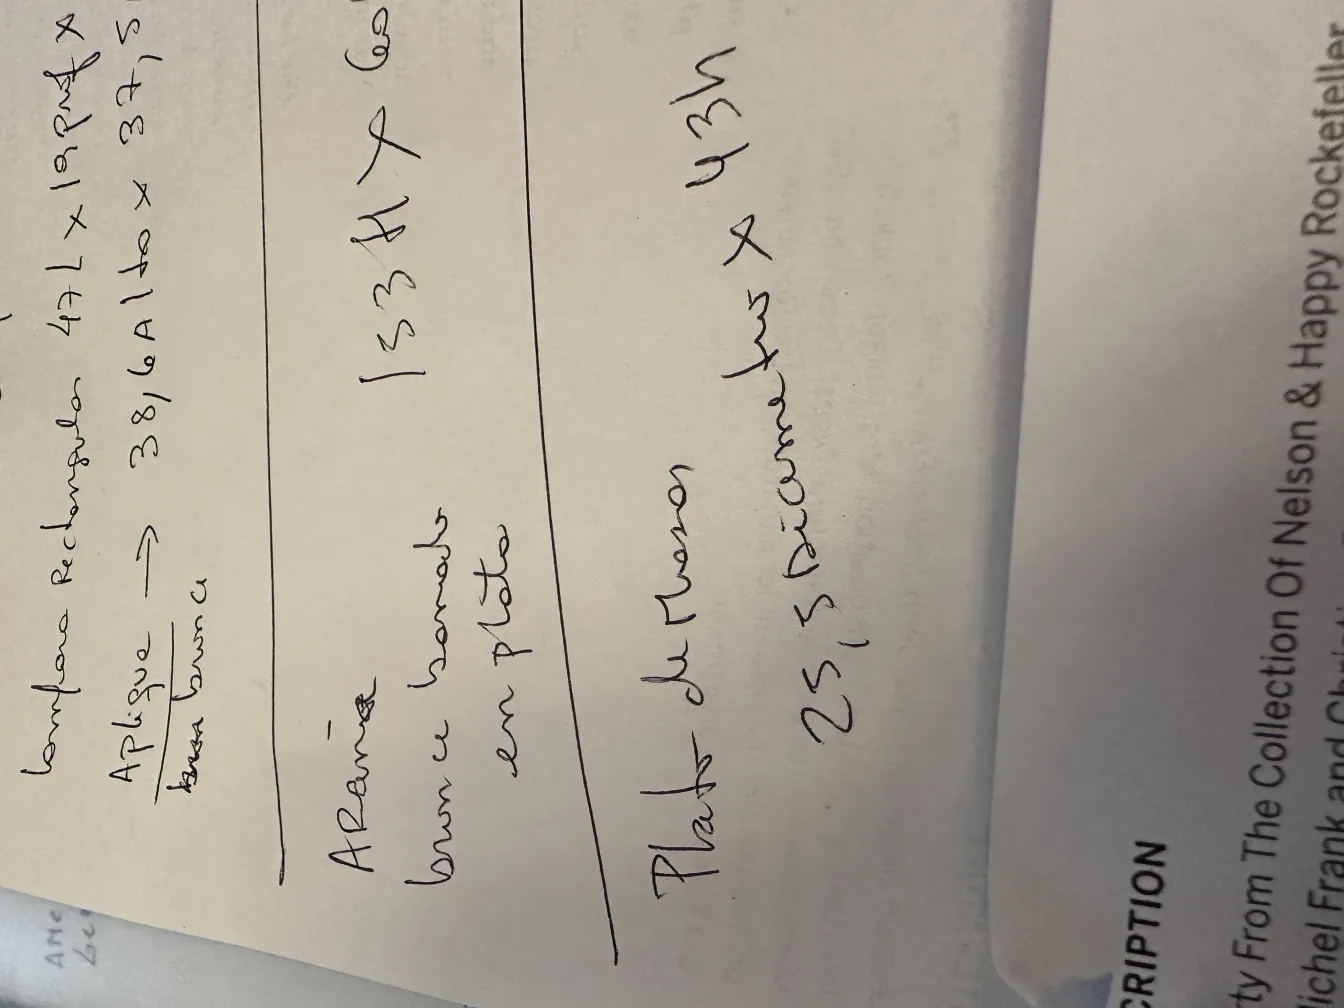 Lampara Rectangular 47L x 19 prof x
Aplique → 38,6 Alto x 37,5
bronce
ARaña 153 H x 60
bronce bañado
en plata
Plato de Mesa
25,5 Diametro x 43h
CRIPTION
ty From The Collection Of Nelson & Happy Rockefeller
ichel Frank and